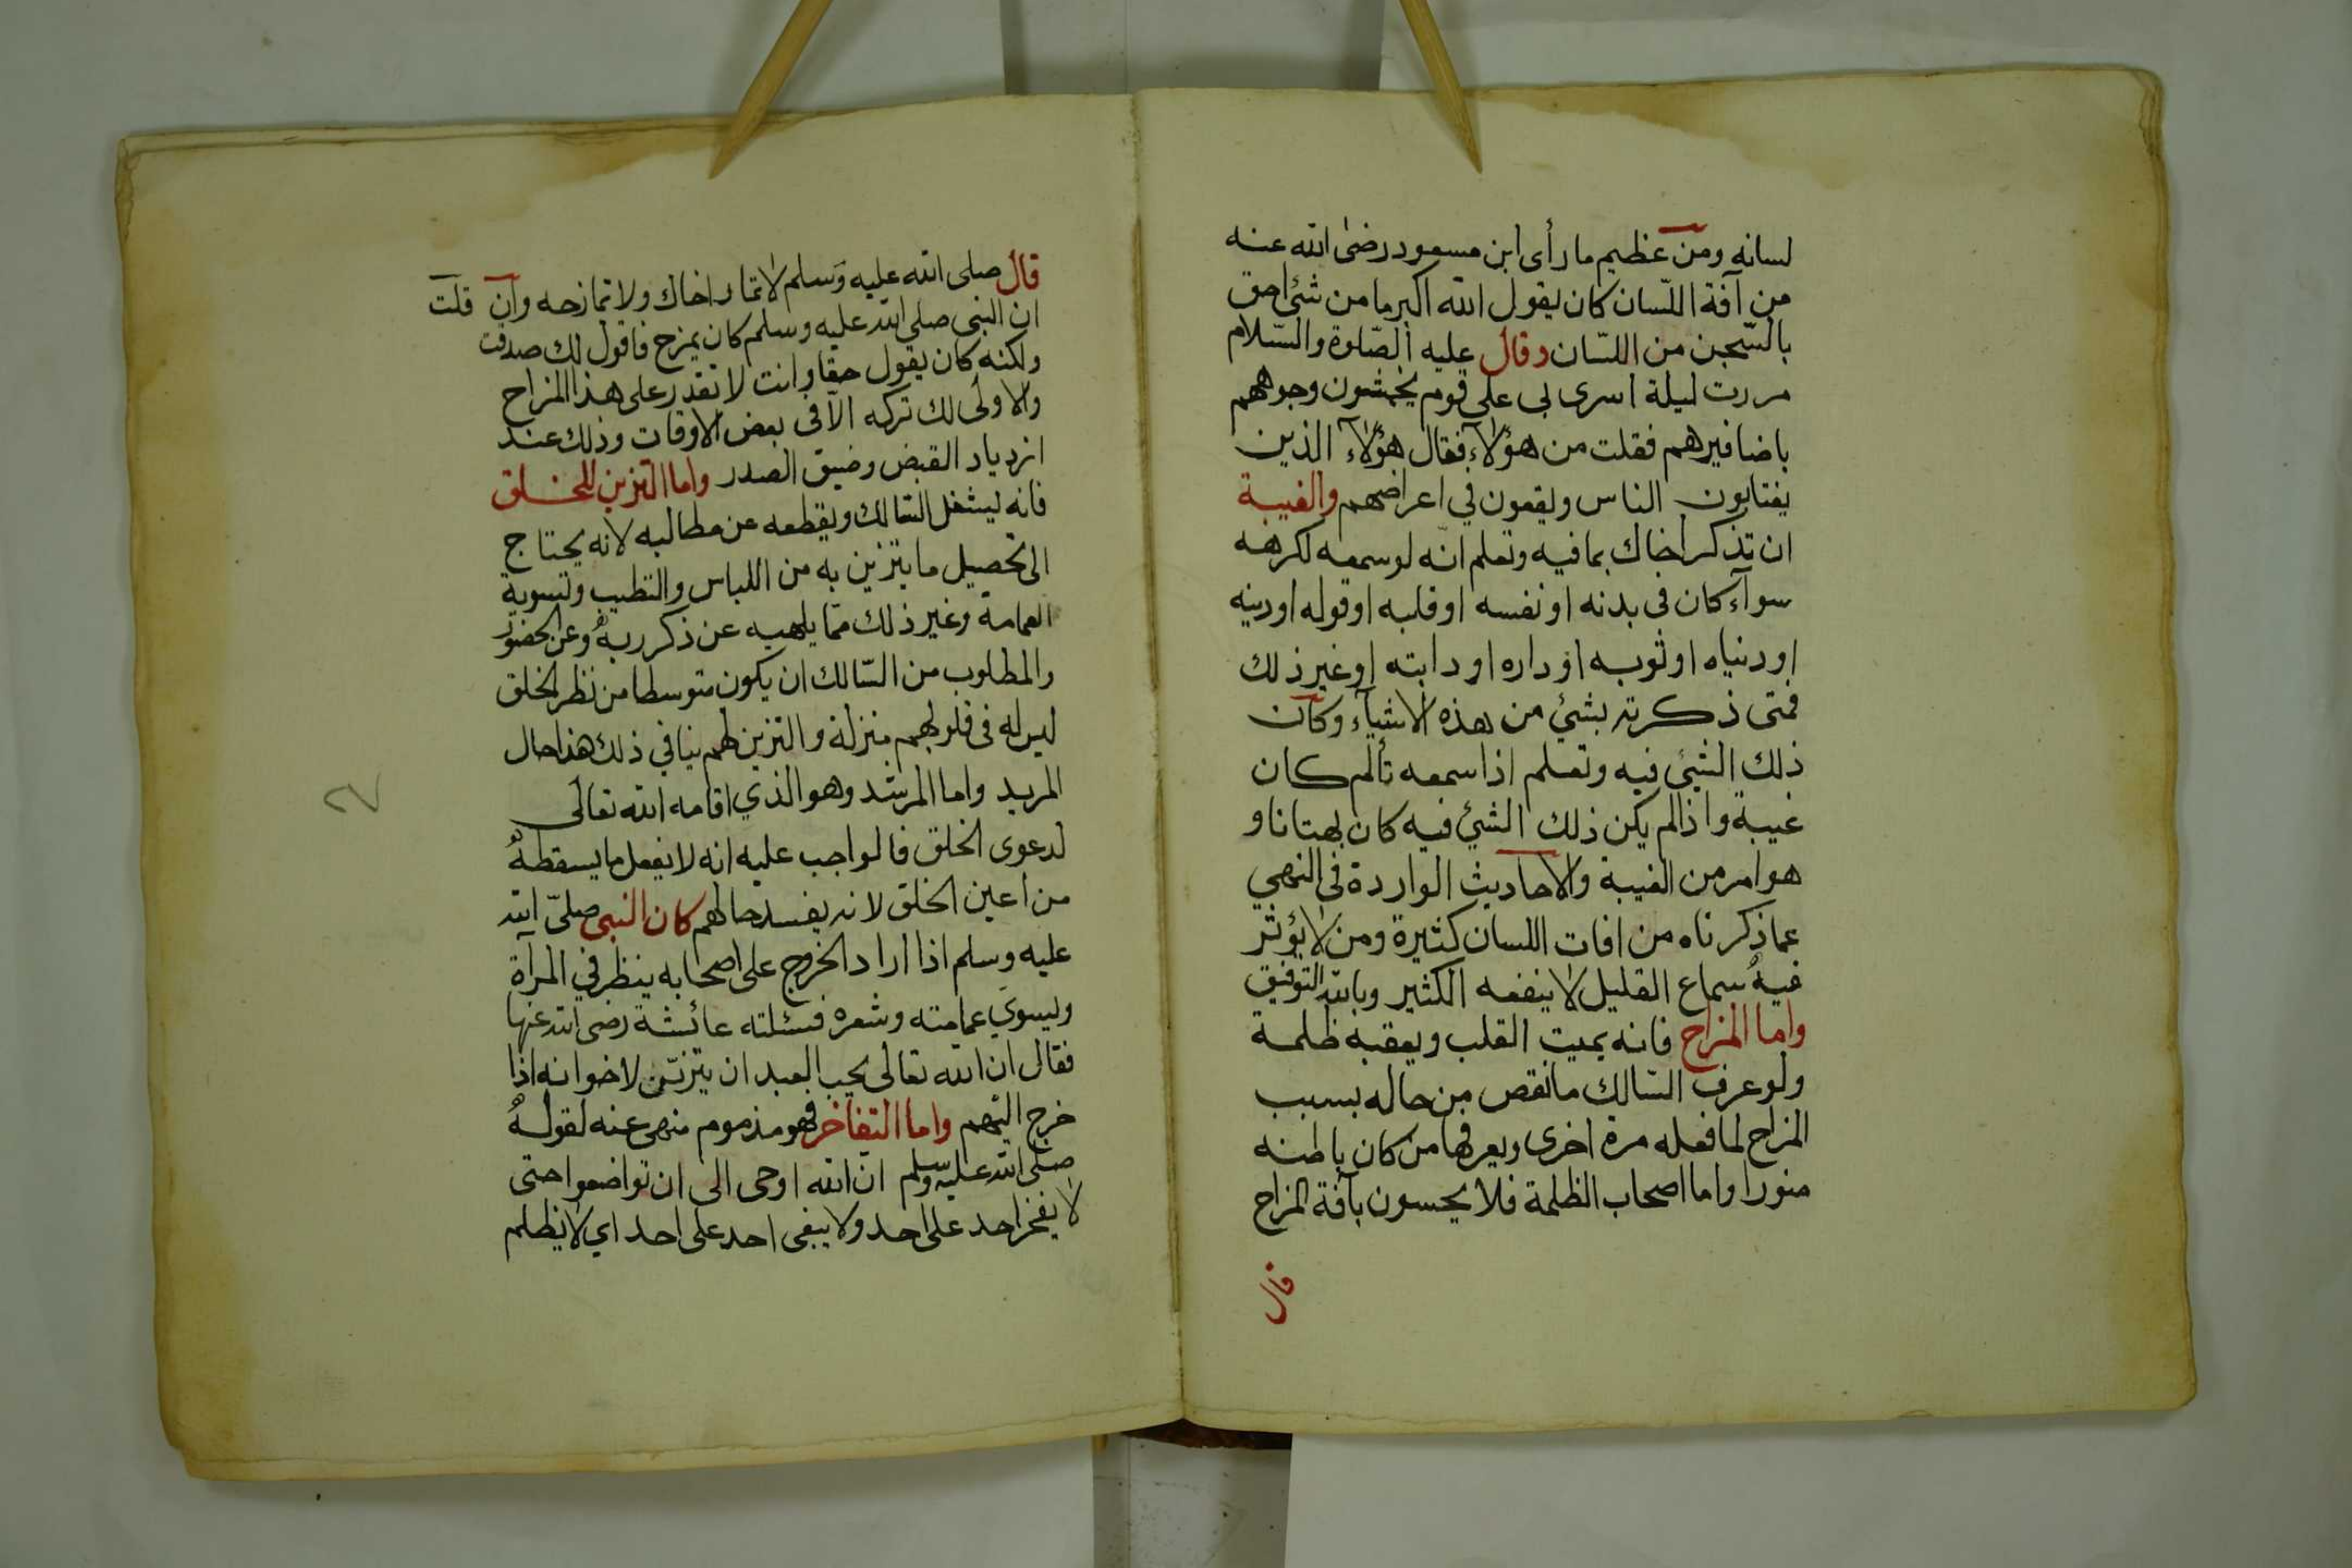 لسانه ومن عظيم ما رأى ابن مسعود رضى الله عنه
من آفة اللّسان كان يقول الله اكبر ما من شئ احق
بالسّجن من اللسّان وقال عليه الصّلوة والسّلام
مررت ليلة اسرى بى على قوم يخمشون وجوههم
باضافيرهم فقلت من هؤلاء فقال هؤلاء الذين
يغتابون الناس ويقعون في اعراضهم والغيبة
ان تذكر اخاك بما فيه وتعلم انّه لو سمعه لكرهه
سوآء كان فى بدنه او نفسه او قلبه او قوله او دينه
او دنياه او ثوبه او داره او دابته او غير ذلك
فمتى ذكرته بشئ من هذه الاشيآء وكان
ذلك الشئ فيه وتعلم اذا سمعه تألم كان
غيبة واذا لم يكن ذلك الشئ فيه كان بهتانا و
هو امر من الغيبة والاحاديث الواردة فى النهي
عما ذكرناه من افات اللسان كثيرة ومن لا يؤثر
فيه سماع القليل لا ينفعه الكثير وبالله التوفيق
واما المزاح فانه يميت القلب ويعقبه ظلمة
ولو عرف السّالك ما نقص من حاله بسبب
المزاح لما فعله مرة اخرى ويعرفها من كان باطنه
منورا واما اصحاب الظلمة فلا يحسون بآفة المزاح
قال
قال صلى الله عليه وسلم لا تمار اخاك ولا تمازحه وان قلت
ان النبى صلى الله عليه وسلم كان يمزح فاقول لك صدقت
ولكنه كان يقول حقا وانت لا تقدر على هذا المزاح
والاولى لك تركه الا فى بعض الاوقات وذلك عند
ازدياد القبض وضيق الصدر واما التزين للخلق
فانه يشغل السّالك ويقطعه عن مطالبه لانه يحتاج
الى تحصيل ما يتزين به من اللباس والتطيب وتسوية
العمامة وغير ذلك ممّا يلهيه عن ذكر ربه وعن الحضور
والمطلوب من السّالك ان يكون متوسطا من نظر الخلق
ليس له فى قلوبهم منزلة والتزين لهم ينافي ذلك هذا حال
المريد واما المرشد وهو الذي اقامه الله تعالى
لدعوى الخلق فالواجب عليه انه لا يفعل ما يسقطه
من اعين الخلق لانه يفسد حالهم كان النبى صلىّ الله
عليه وسلم اذا اراد الخروج على اصحابه ينظر في المرآة
ويسوي عمامته وشعره فسئلته عائشة رضى الله عنها
فقال ان الله تعالى يحب العبد ان يتزيّن لاخوانه اذا
خرج اليهم واما التفاخر فهو مذموم منهى عنه لقوله
صلى الله عليه وسلم ان الله اوحى الى ان تواضعوا حتى
لا يفخر احد على احد ولا يبغى احد على احد اي لا يظلم
٢٧